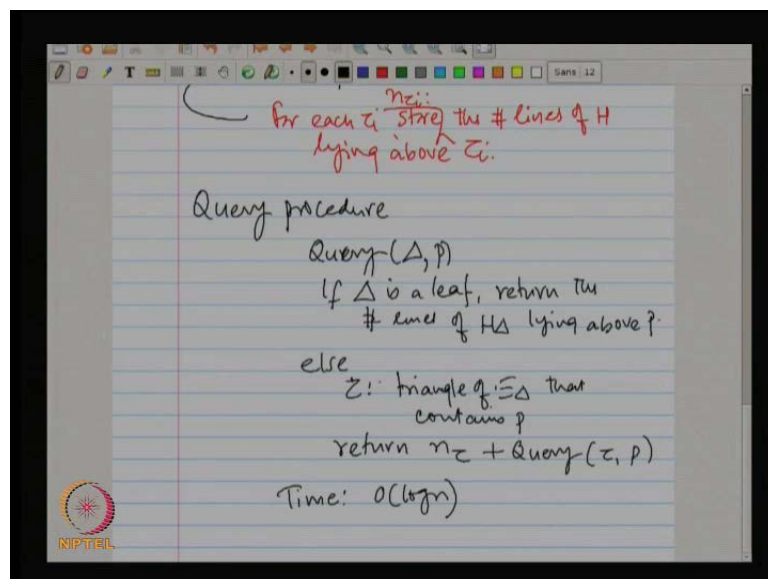 Sans 12
n_τi:
for each τi store the # lines of H
lying above τi.
Query procedure
Query(Δ, p)
If Δ is a leaf, return the
# lines of HΔ lying above p.
else
τ: triangle of ΞΔ that
contains p
return n_τ + Query(τ, p)
Time: O(logn)
NPTEL